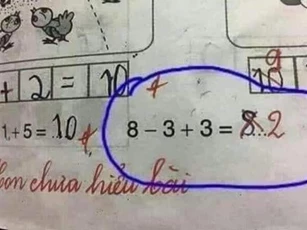 9
+ 2 = 10 10
1+5=.10. 8 – 3 + 3 = 8.2
con chưa hiểu bài